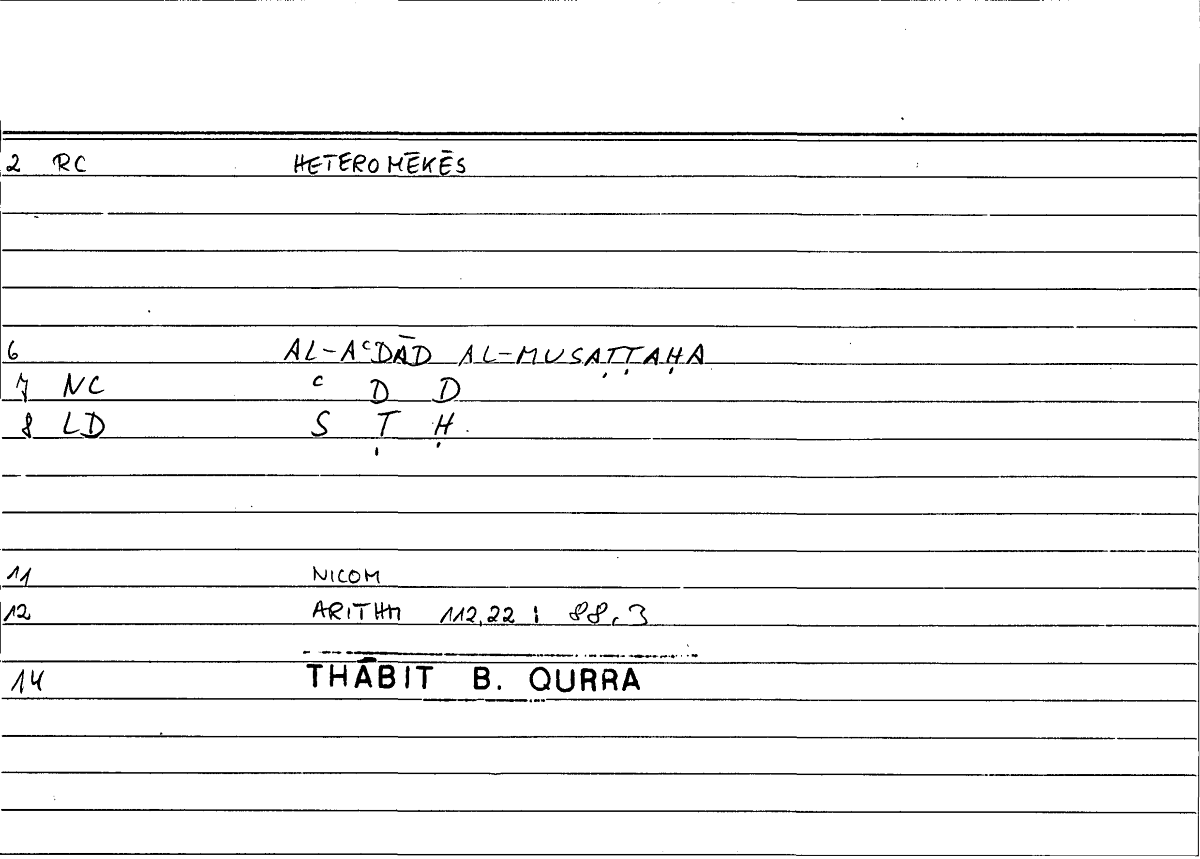 2 RC HETEROMĒKĒS
6 AL-AᶜDĀD AL-MUSAṬṬAḤA
7 NC ᶜ D D
8 LD S Ṭ Ḥ
11 NICOM
12 ARITHM 112,22 ; 88,3
14 THĀBIT B. QURRA